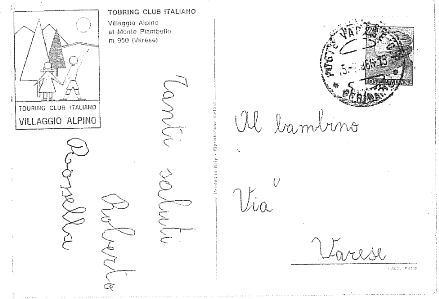 TOURING CLUB ITALIANO
Villaggio Alpino
al Monte Piambello
m 950 (Varese)
TOURING CLUB ITALIANO
VILLAGGIO ALPINO
Tanti saluti
Roberto
Rossella
Al bambino
Via
Varese